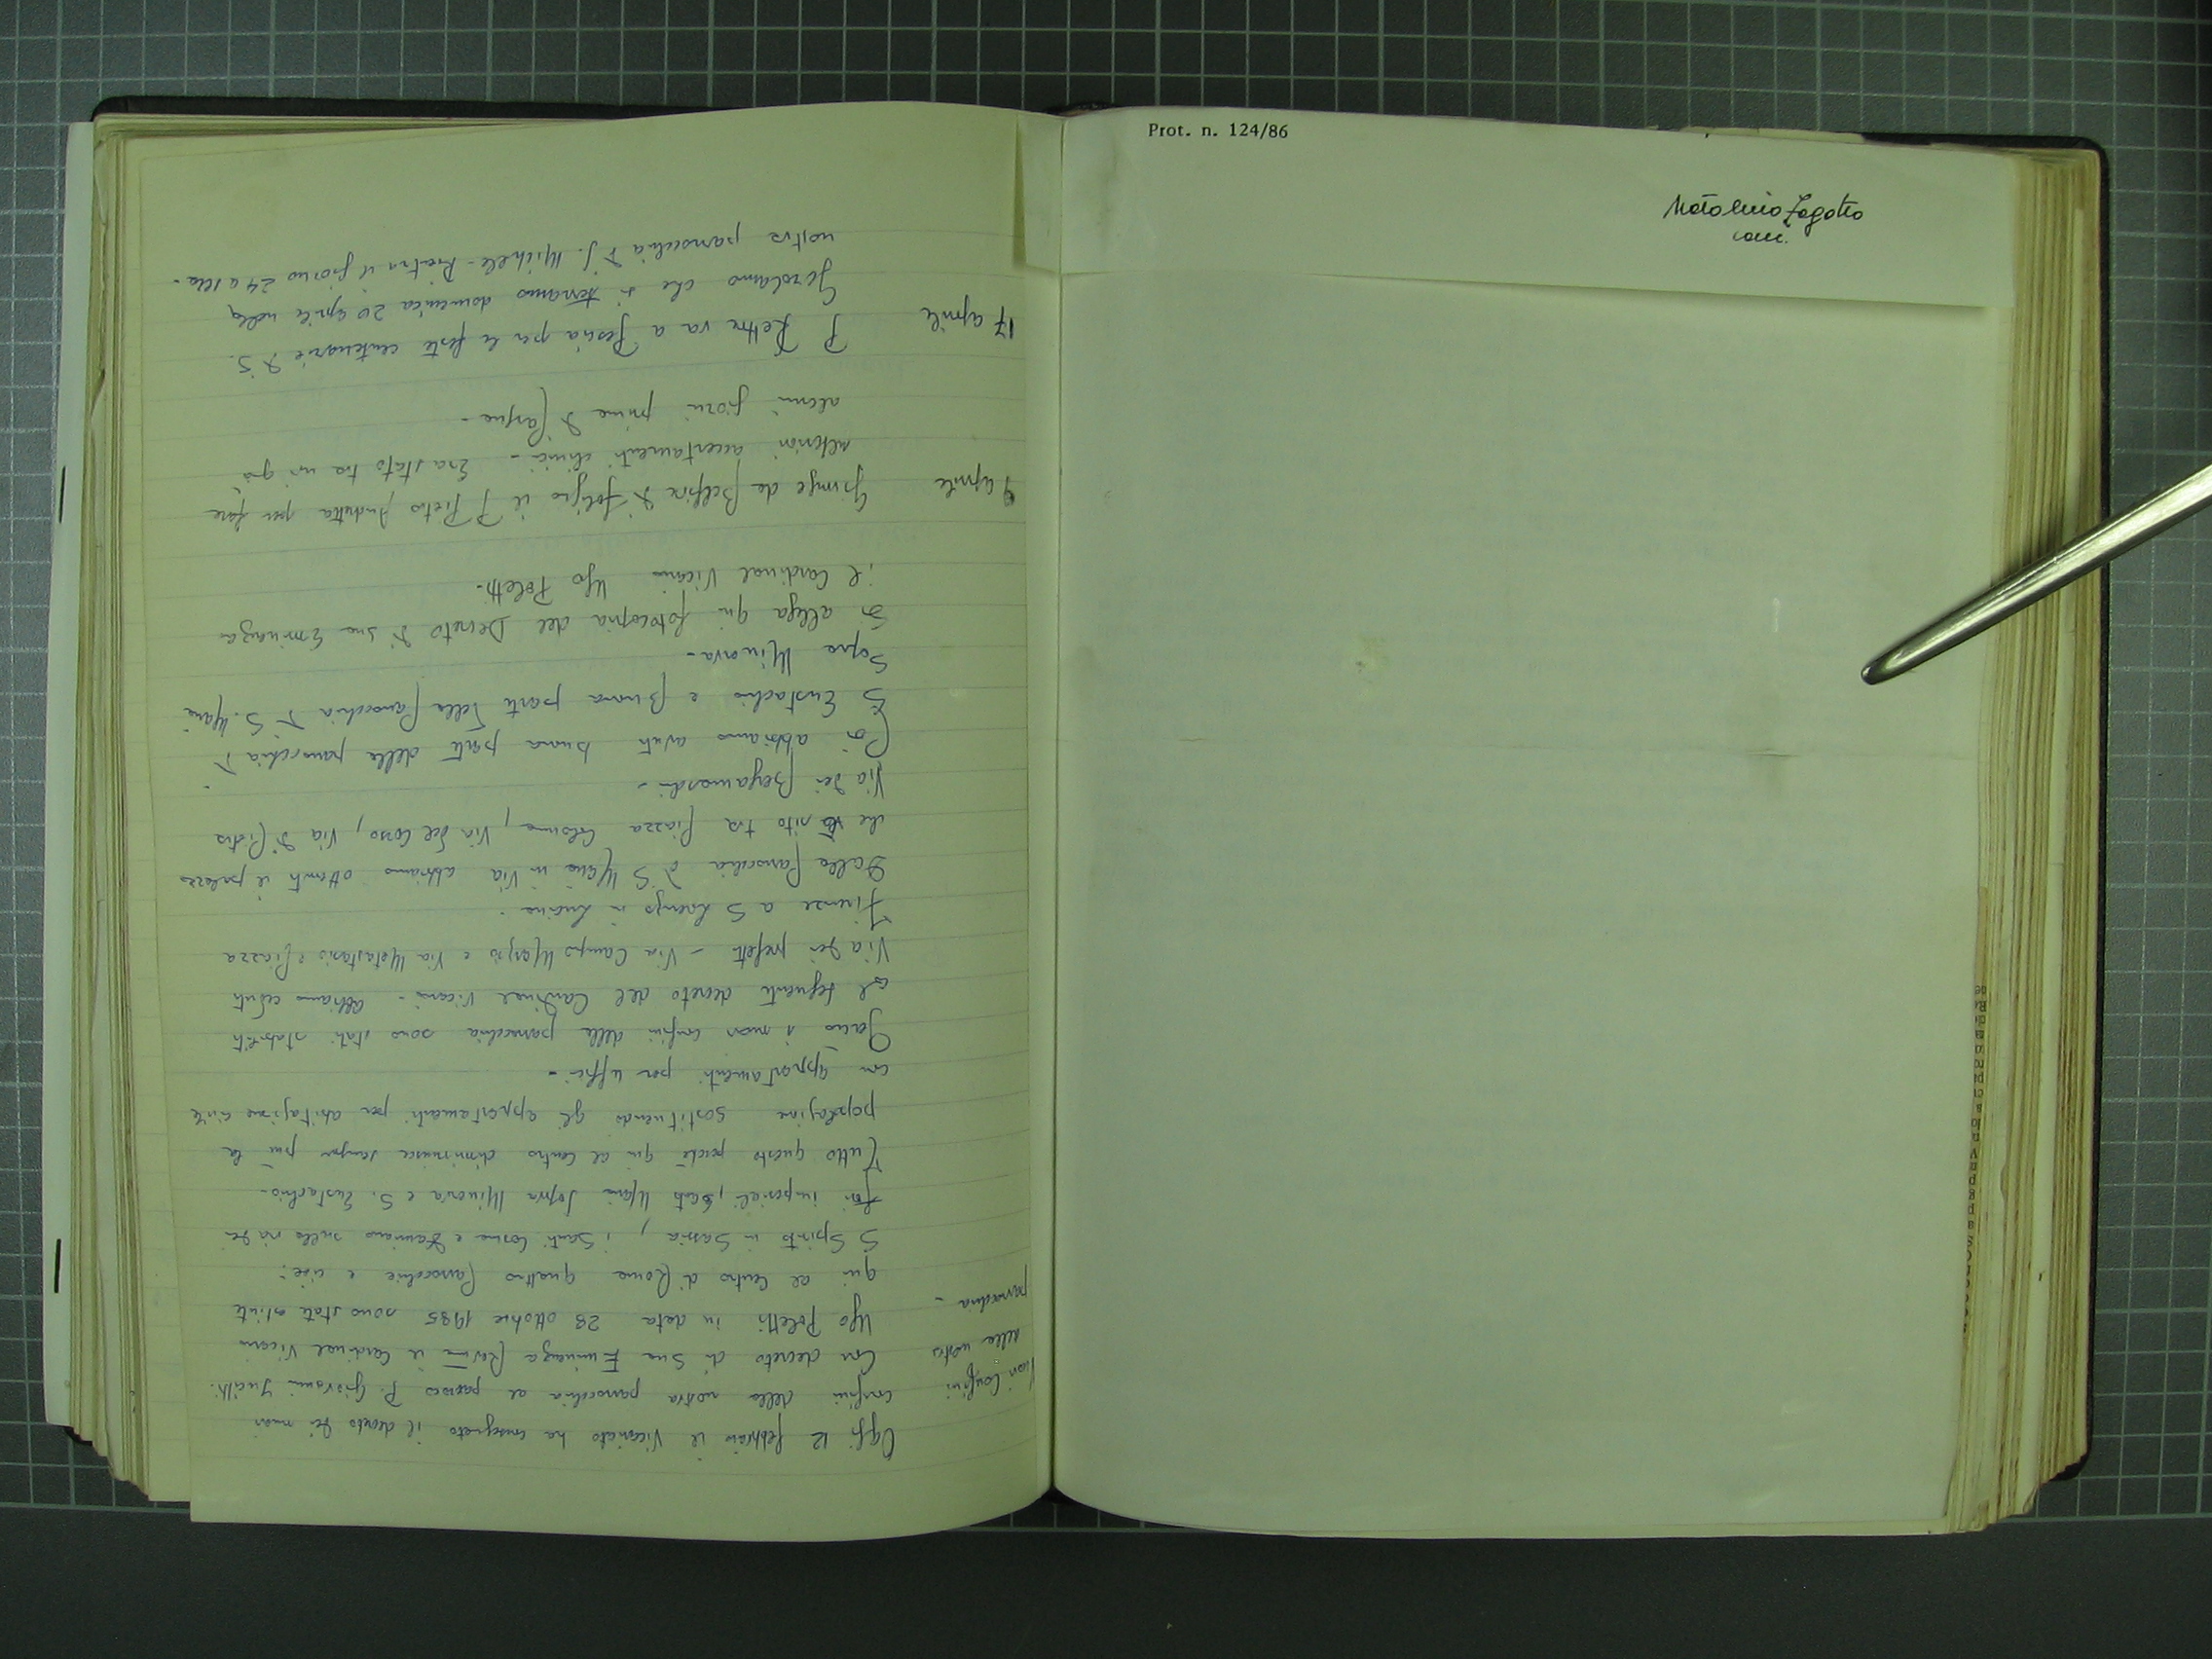 Oggi 12 febbraio il Vicariato ha consegnato il decreto dei nuovi
Nuovi Confini
della nostra
parrocchia -
confini della nostra parrocchia al parroco P. Giovanni
Con decreto di Sua Eminenza Rev.ma il Cardinal Vicario
Ugo Poletti in data 28 ottobre 1985 sono state estinte
qui al Centro di Roma quattro Parrocchie e cioè:
S Spirito in Sassia, i Santi Cosma e Damiano sulla via dei
fori imperiali, Santa Maria Sopra Minerva e S. Eustachio -
Tutto questo perché qui al centro diminuisce sempre più la
popolazione sostituendo gli appartamenti per abitazione civile
con appartamenti per uffici -
i nuovi confini della parrocchia sono stati stabiliti
al seguente decreto del Cardinal Vicario - Abbiamo ceduti
Via dei prefetti - Via Campo Marzio e Via Metastasio e Piazza
Firenze a S Lorenzo in Lucina -
Dalla Parrocchia di S Maria in Via abbiamo ottenuti il palazzo
che sito tra Piazza Colonna, Via del Corso, Via di Pietra
Via dei Bergamaschi -
Poi abbiamo avuti buona parte della parrocchia di
S Eustachio e Buona parte della Parrocchia di S. Maria
Sopra Minerva -
Si allega qui fotocopia del Decreto di sua Eminenza
il Cardinal Vicario Ugo Poletti -
9 aprile
Giunge da il P Pietro per fare
ulteriori accertamenti clinici - Era stato tra noi già
alcuni giorni prima di Pasqua -
17 aprile
P Rettore va a Pescia per le feste centenarie di S.
Girolamo che si terranno domenica 20 aprile nella
nostra parrocchia di S. Michele - Rientra il giorno 24 a sera -
Prot. n. 124/86